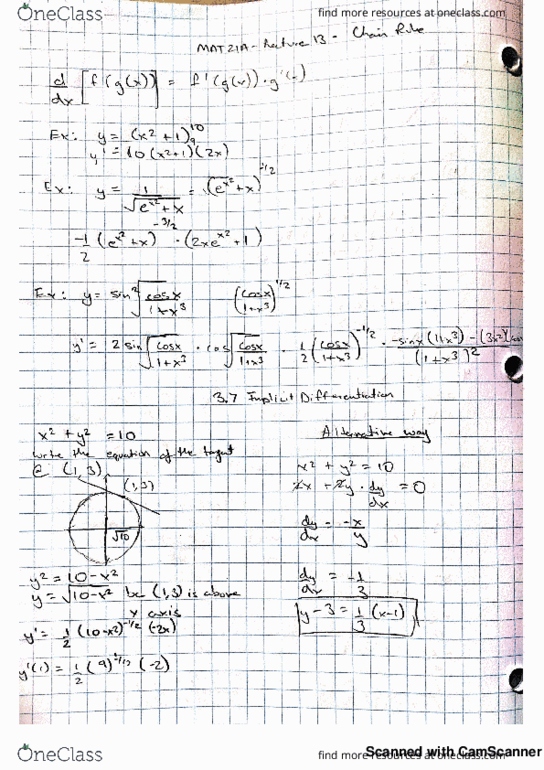 OneClass
find more resources at oneclass.com
MAT21A - Lecture 13 - Chain Rule
d/dx [f(g(x))] = f'(g(x)) · g'(x)
Ex: y = (x² + 1)¹⁰
y' = 10(x²+1)⁹(2x)
Ex: y = 1/√(e^(x²) + x) = (e^(x²) + x)^(-1/2)
-1/2 (e^(x²) + x)^(-3/2) · (2xe^(x²) + 1)
Ex: y = sin² √(cosx/(1+x³)) (cosx/(1+x³))^(1/2)
y' = 2 sin √(cosx/(1+x³)) · cos √(cosx/(1+x³)) · 1/2 (cosx/(1+x³))^(-1/2) · (-sinx(1+x³) - (3x²)(cos/(1+x³)²
3.7 Implicit Differentiation
x² + y² = 10
write the equation of the tangent
@ (1,3)
(1,3)
√10
y² = 10 - x²
y = √(10-x²) bc (1,3) is above
x axis
y' = 1/2 (10-x²)^(-1/2) (-2x)
y'(1) = 1/2 (9)^(-1/2) (-2)
Alternative way
x² + y² = 10
2x + 2y · dy/dx = 0
dy/dx = -x/y
dy/dx = -1/3
y - 3 = 1/3 (x-1)
OneClass
find more resources at oneclass.com
Scanned with CamScanner